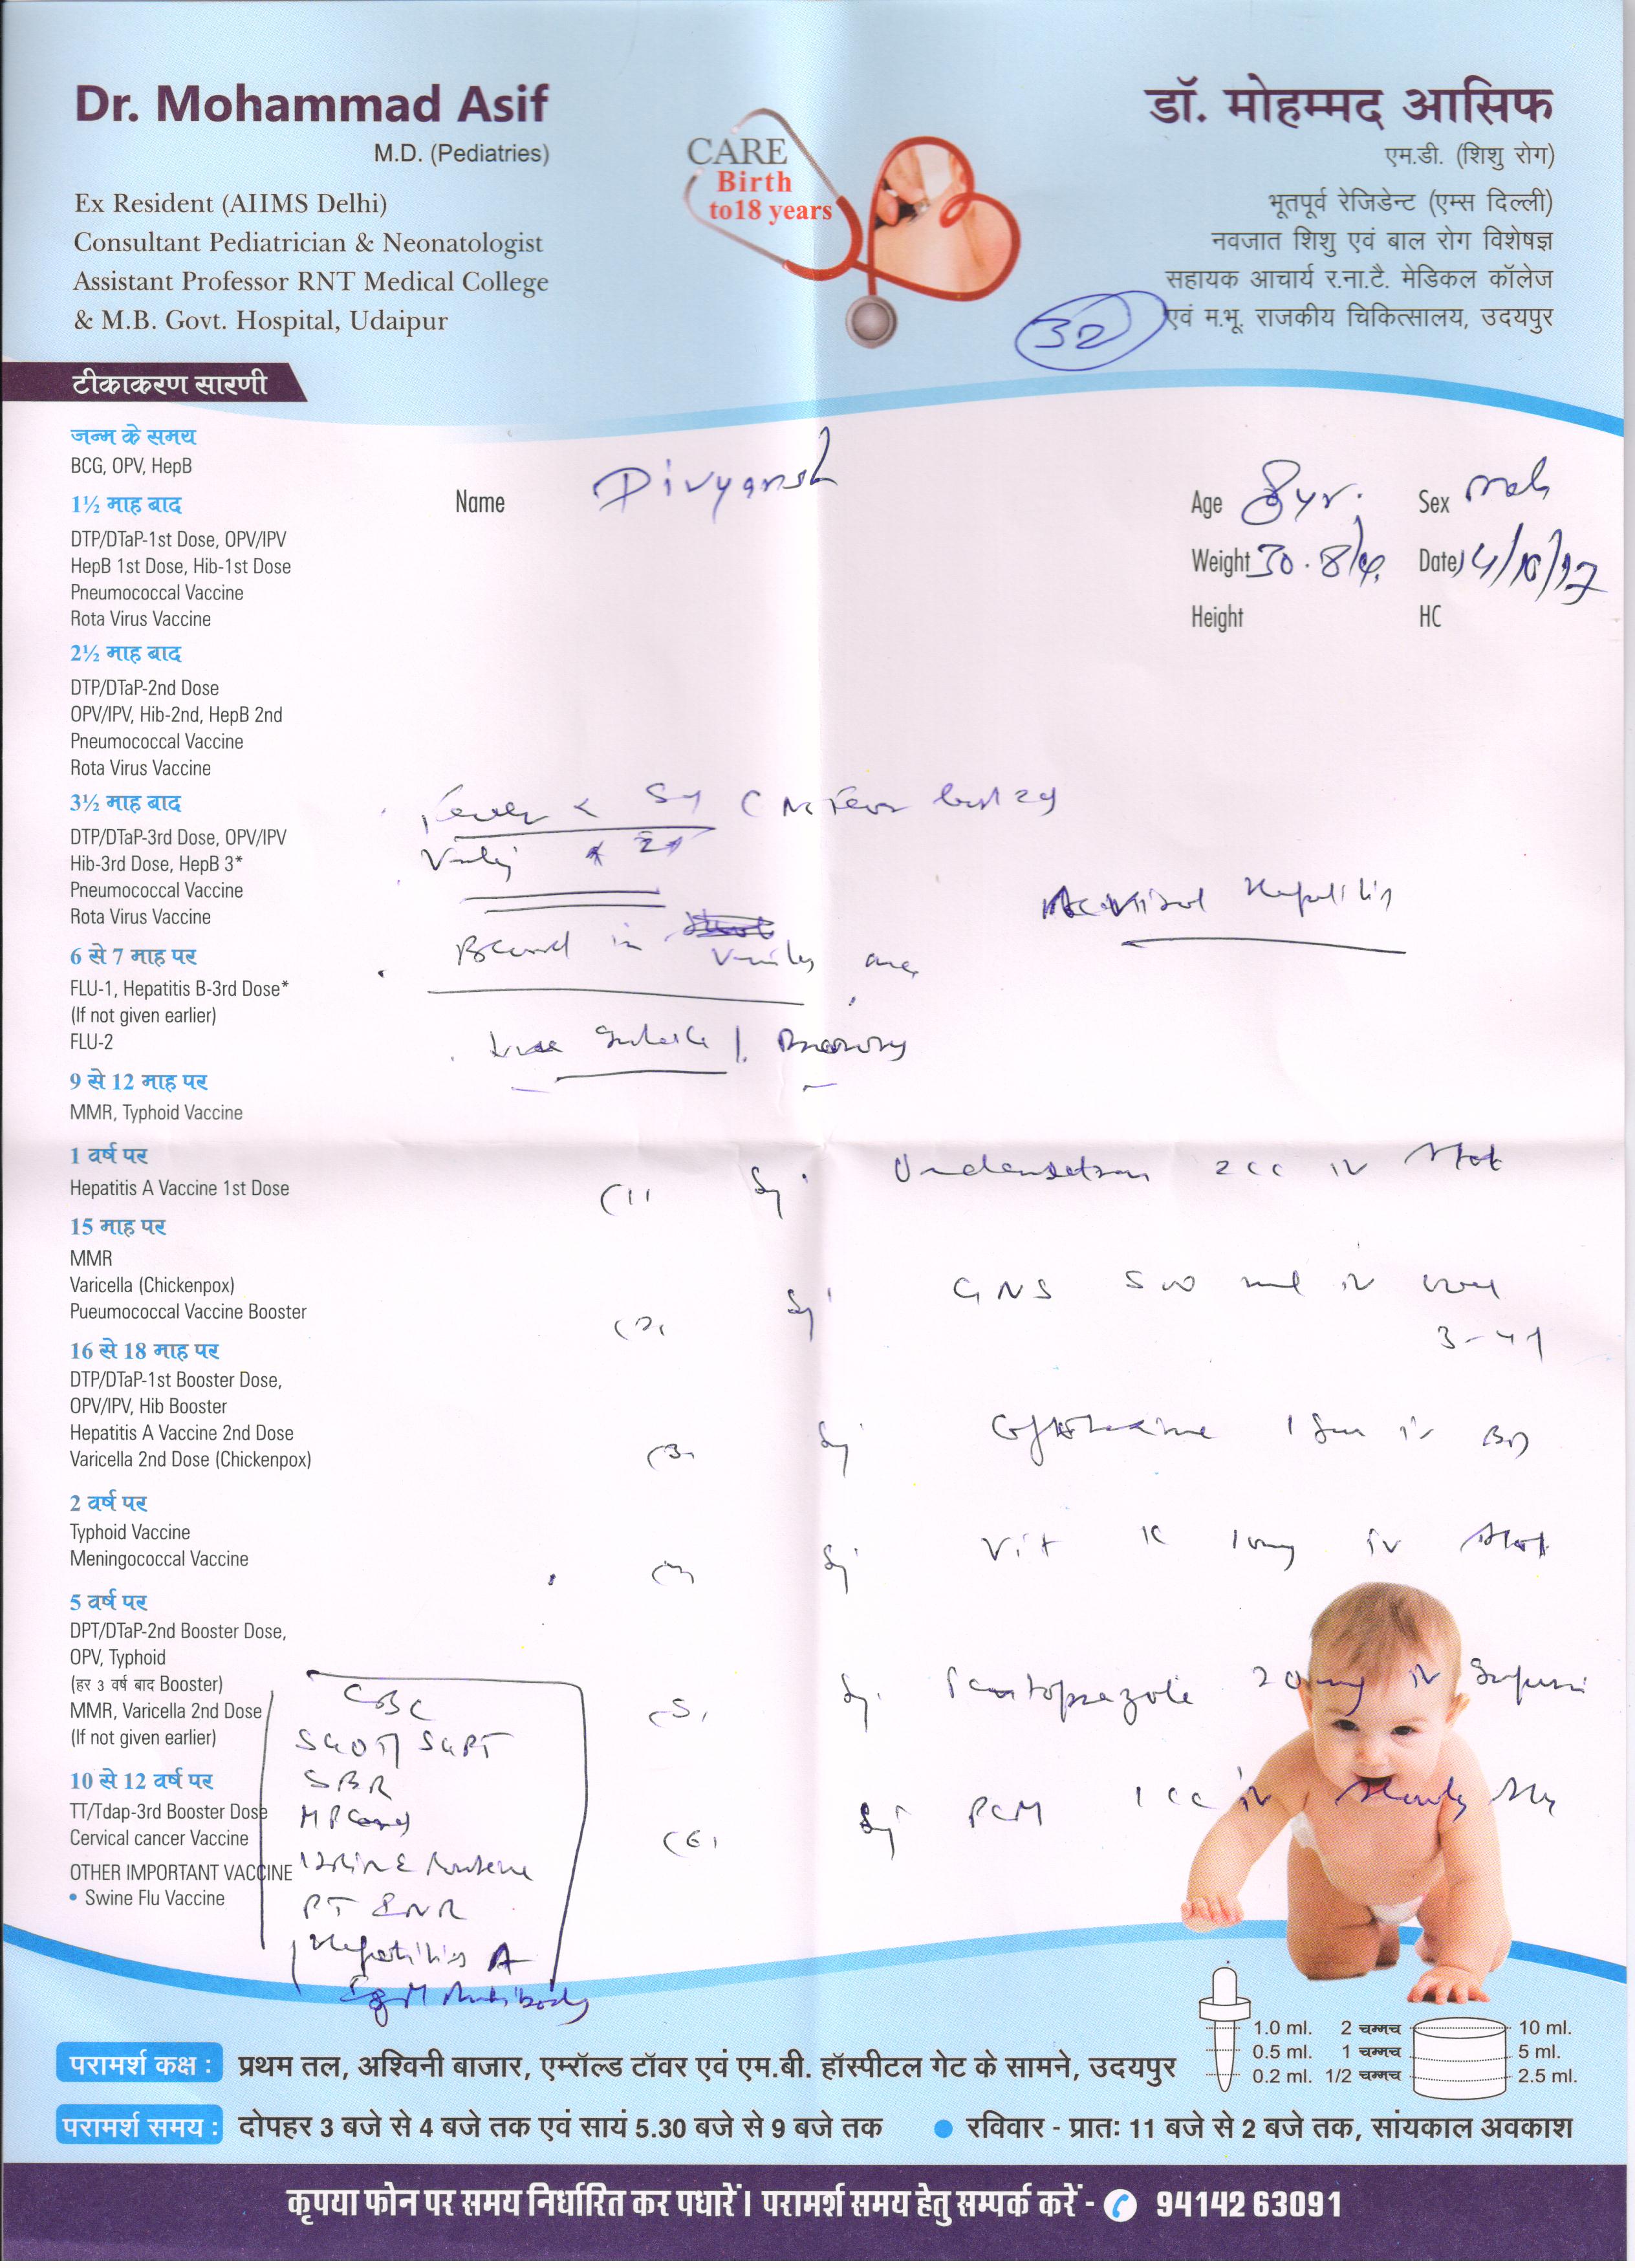 Dr. Mohammad Asif
M.D. (Pediatries)
Ex Resident (AIIMS Delhi)
Consultant Pediatrician & Neonatologist
Assistant Professor RNT Medical College
& M.B. Govt. Hospital, Udaipur
CARE
Birth
to18 years
डॉ. मोहम्मद आसिफ
एम.डी. (शिशु रोग)
भूतपूर्व रेजिडेन्ट (एम्स दिल्ली)
नवजात शिशु एवं बाल रोग विशेषज्ञ
सहायक आचार्य र.ना.टै. मेडिकल कॉलेज
एवं म.भू. राजकीय चिकित्सालय, उदयपुर
32
टीकाकरण सारणी
जन्म के समय
BCG, OPV, HepB
1½ माह बाद
DTP/DTaP-1st Dose, OPV/IPV
HepB 1st Dose, Hib-1st Dose
Pneumococcal Vaccine
Rota Virus Vaccine
2½ माह बाद
DTP/DTaP-2nd Dose
OPV/IPV, Hib-2nd, HepB 2nd
Pneumococcal Vaccine
Rota Virus Vaccine
3½ माह बाद
DTP/DTaP-3rd Dose, OPV/IPV
Hib-3rd Dose, HepB 3*
Pneumococcal Vaccine
Rota Virus Vaccine
6 से 7 माह पर
FLU-1, Hepatitis B-3rd Dose*
(If not given earlier)
FLU-2
9 से 12 माह पर
MMR, Typhoid Vaccine
1 वर्ष पर
Hepatitis A Vaccine 1st Dose
15 माह पर
MMR
Varicella (Chickenpox)
Pueumococcal Vaccine Booster
16 से 18 माह पर
DTP/DTaP-1st Booster Dose,
OPV/IPV, Hib Booster
Hepatitis A Vaccine 2nd Dose
Varicella 2nd Dose (Chickenpox)
2 वर्ष पर
Typhoid Vaccine
Meningococcal Vaccine
5 वर्ष पर
DPT/DTaP-2nd Booster Dose,
OPV, Typhoid
(हर 3 वर्ष बाद Booster)
MMR, Varicella 2nd Dose
(If not given earlier)
10 से 12 वर्ष पर
TT/Tdap-3rd Booster Dose
Cervical cancer Vaccine
OTHER IMPORTANT VACCINE
• Swine Flu Vaccine
Name Divyansh
Age 8 yr. Sex male
Weight 30.8 Date 14/10/17
Height HC
Fever
Hepatitis
(1) Inj. Ondansetron 2cc iv stat
(2) Inj. GNS 500 ml iv over
3-4
(3) Inj. 1 gm iv BD
(4) Inj. Vit K 10mg iv stat
(5) Inj. Pantoprazole 20mg iv
(6) Inj PCM 1cc iv slowly
CBC
SGOT/ SGPT
SBR
MP Card
Urine Routine
PT INR
Hepatitis A
IgM Antibody
1.0 ml. 2 चम्मच 10 ml.
0.5 ml. 1 चम्मच 5 ml.
0.2 ml. 1/2 चम्मच 2.5 ml.
परामर्श कक्ष : प्रथम तल, अश्विनी बाजार, एम्रॉल्ड टॉवर एवं एम.बी. हॉस्पीटल गेट के सामने, उदयपुर
परामर्श समय : दोपहर 3 बजे से 4 बजे तक एवं सायं 5.30 बजे से 9 बजे तक • रविवार - प्रातः 11 बजे से 2 बजे तक, सांयकाल अवकाश
कृपया फोन पर समय निर्धारित कर पधारें। परामर्श समय हेतु सम्पर्क करें - 94142 63091